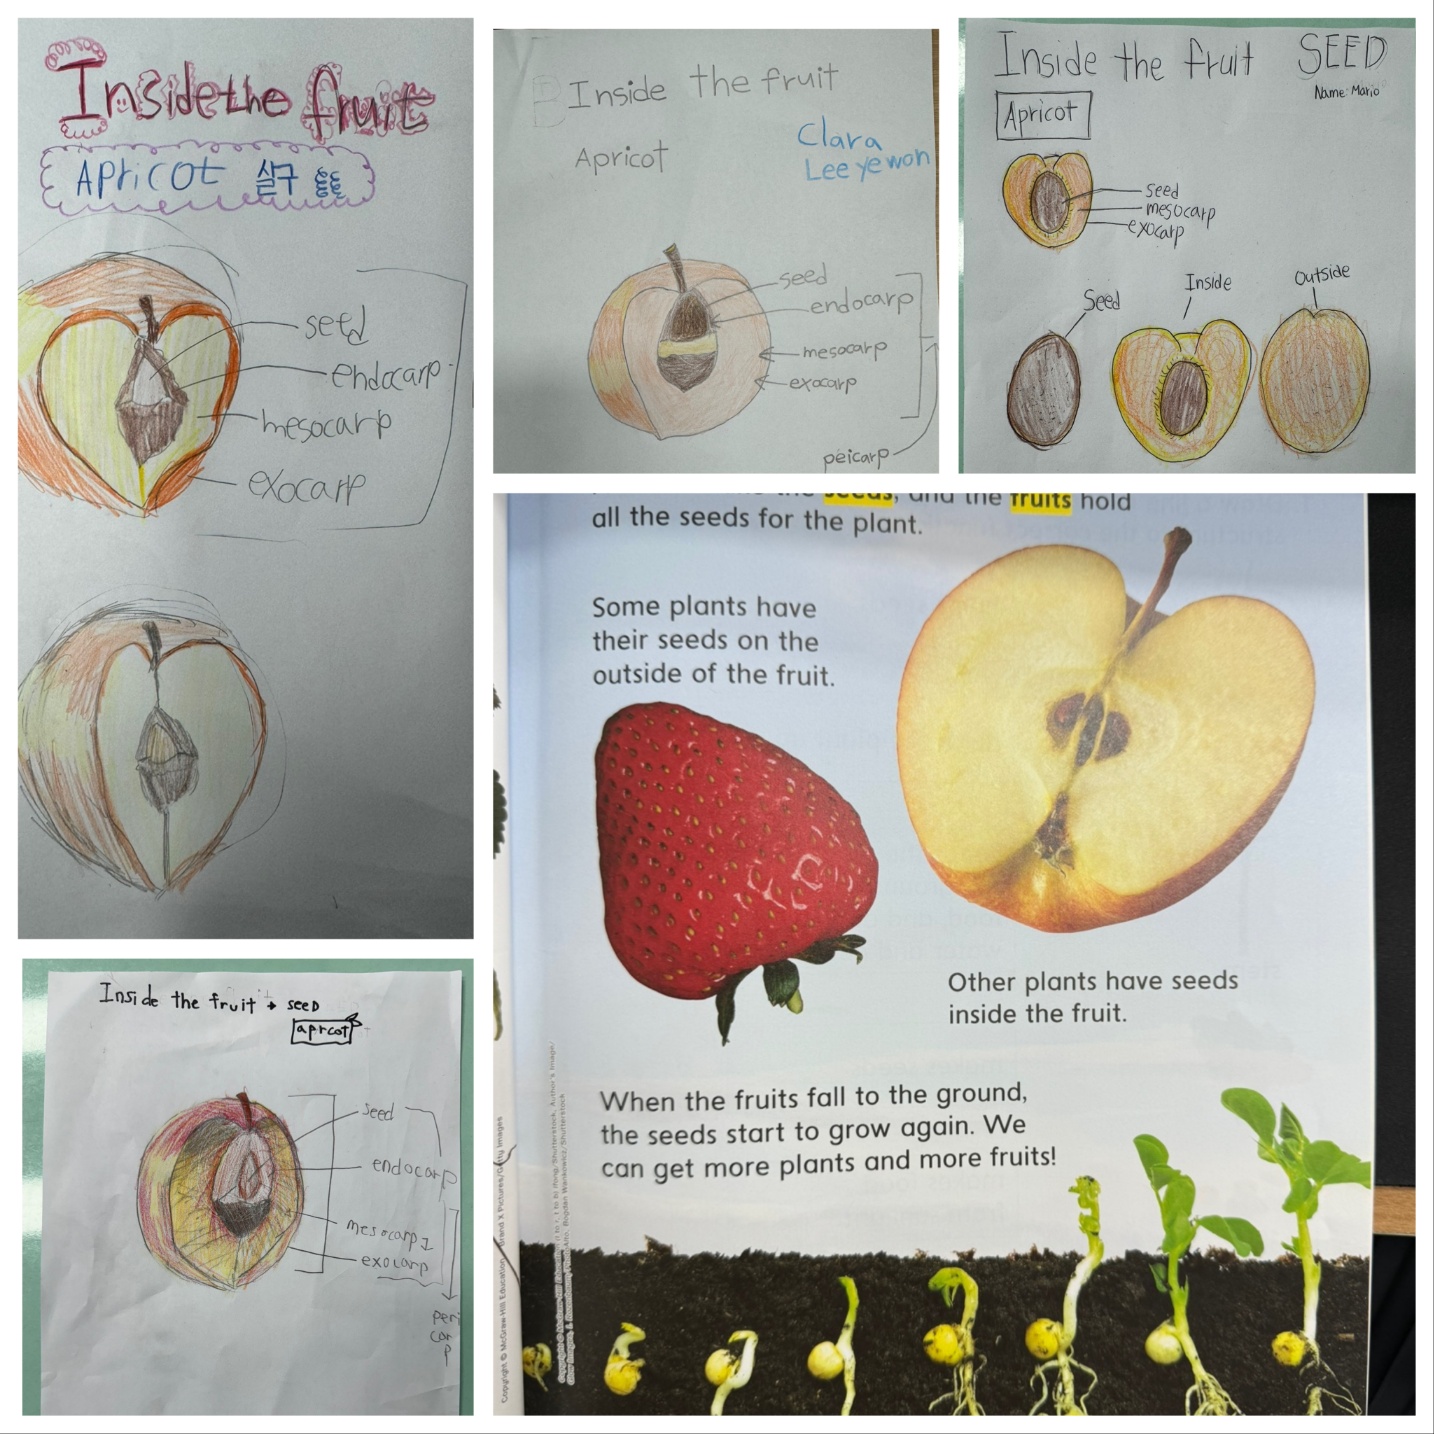 Inside the fruit
Apricot 살구
seed
endocarp
mesocarp
exocarp
Inside the fruit
Apricot
Clara
Lee ye won
seed
endocarp
mesocarp
exocarp
peicarp
Inside the fruit SEED
Name: Mario
Apricot
seed
mesocarp
exocarp
Seed
Inside
Outside
Inside the fruit → seed
aprcot
seed
endocarp
mesocarp
exocarp
peri
car
p
seeds, and the fruits hold
all the seeds for the plant.
Some plants have
their seeds on the
outside of the fruit.
Other plants have seeds
inside the fruit.
When the fruits fall to the ground,
the seeds start to grow again. We
can get more plants and more fruits!
Copyright © McGraw-Hill Education